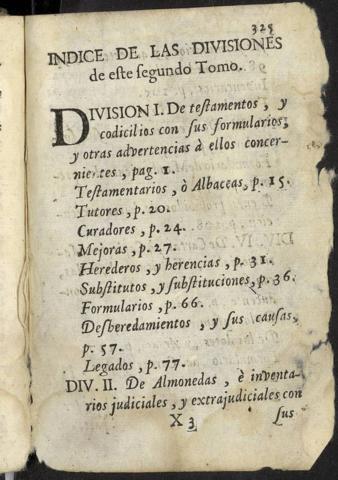 325
INDICE DE LAS DIVISIONES
de este segundo Tomo.
DIVISION I. De testamentos, y
codicilios con sus formularios,
y otras advertencias à ellos concer-
nientes, pag. 1.
Testamentarios, ò Albaceas, p. 15.
Tutores, p. 20.
Curadores, p. 24.
Mejoras, p. 27.
Herederos, y herencias, p. 31.
Substitutos, y substituciones, p. 36.
Formularios, p. 66.
Desheredamientos, y sus causas,
p. 57.
Legados, p. 77.
DIV. II. De Almonedas, è inventa-
rios judiciales, y extrajudiciales con
X 3 sus